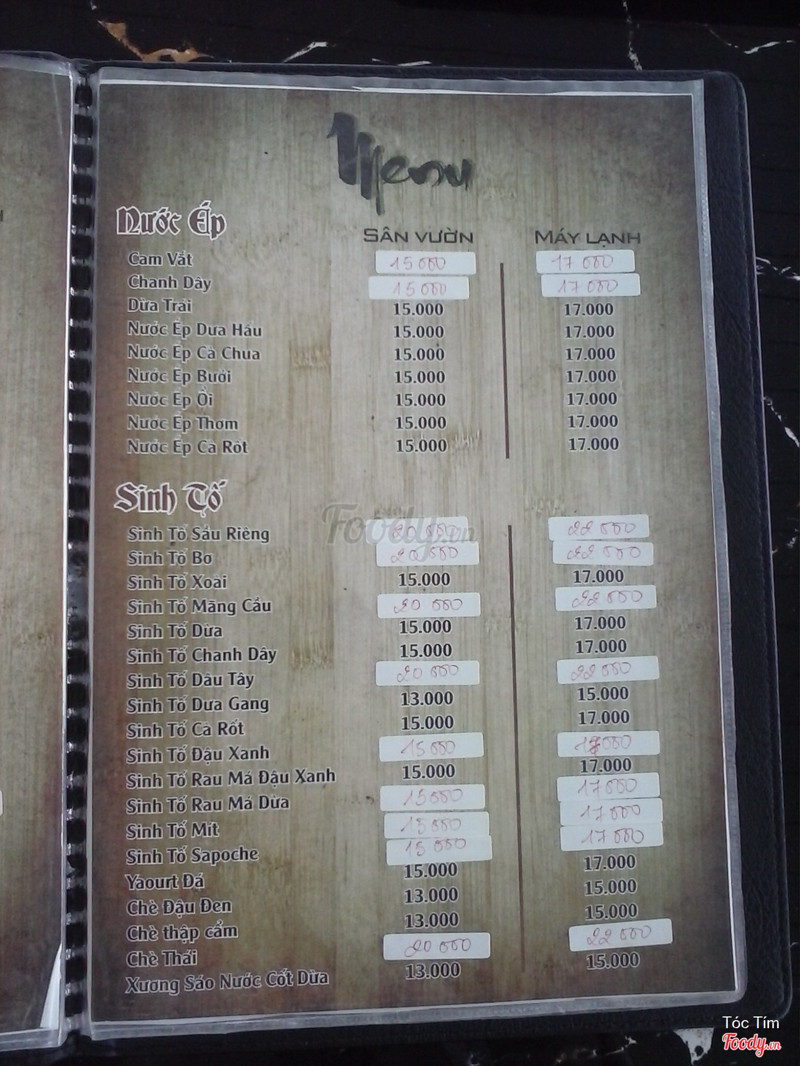 Menu
Nước Ép SÂN VƯỜN MÁY LẠNH
Cam Vắt 15 000 17 000
Chanh Dây 15 000 17 000
Dừa Trái 15.000 17.000
Nước Ép Dưa Hấu 15.000 17.000
Nước Ép Cà Chua 15.000 17.000
Nước Ép Bưởi 15.000 17.000
Nước Ép Ổi 15.000 17.000
Nước Ép Thơm 15.000 17.000
Nước Ép Cà Rốt 15.000 17.000
Sinh Tố
Sinh Tố Sầu Riêng 20 000 22 000
Sinh Tố Bơ 20 000 22 000
Sinh Tố Xoài 15.000 17.000
Sinh Tố Mãng Cầu 20 000 22 000
Sinh Tố Dừa 15.000 17.000
Sinh Tố Chanh Dây 15.000 17.000
Sinh Tố Dâu Tây 20 000 22 000
Sinh Tố Dưa Gang 13.000 15.000
Sinh Tố Cà Rốt 15.000 17.000
Sinh Tố Đậu Xanh 15 000 17 000
Sinh Tố Rau Má Đậu Xanh 15.000 17.000
Sinh Tố Rau Má Dừa 15 000 17 000
Sinh Tố Mít 15 000 17 000
Sinh Tố Sapoche 15 000 17 000
Yaourt Đá 15.000 17.000
Chè Đậu Đen 13.000 15.000
Chè thập cẩm 13.000 15.000
Chè Thái 20 000 22 000
Xương Sáo Nước Cốt Dừa 13.000 15.000
Foody.vn
Tóc Tím
Foody.vn